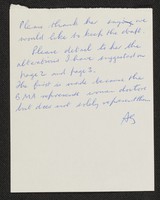 Please thank her saying we
would like to keep the draft.
Please detail to her the
alterations I have suggested on
Page 2 and page 2.
The first is made because the
BMA represents women doctors
but does not solely represent them